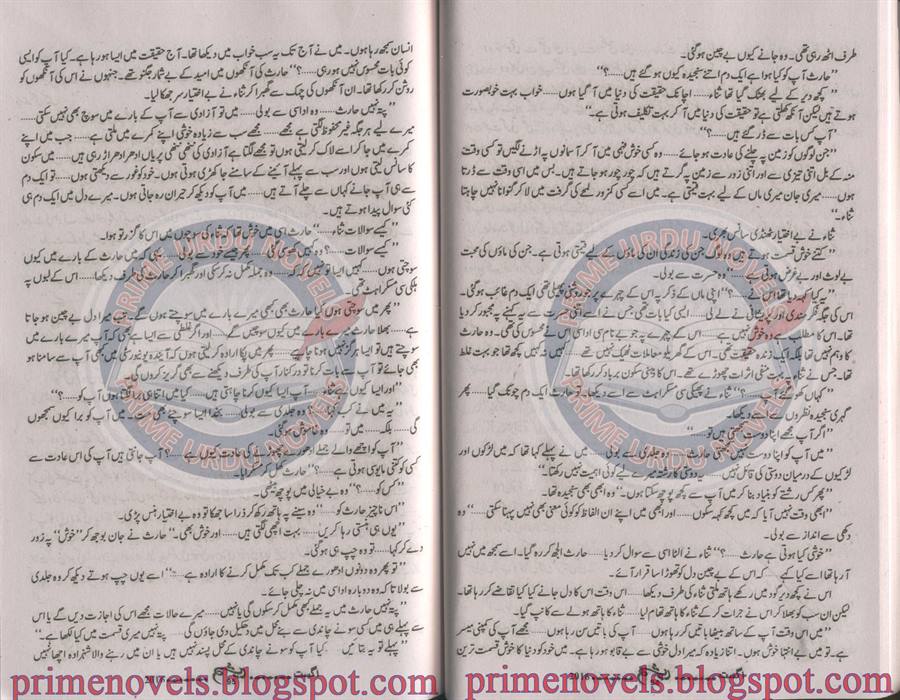 طرف اٹھ رہی تھی۔ وہ جانے کیوں بے چین ہوگئی۔
”حارث آپ کو کیا ہوا ہے ایک دم اتنے سنجیدہ کیوں ہو گئے ہیں.....؟“
”کچھ دیر کے لیے بھٹک گیا تھا ثناء..... اچانک حقیقت کی دنیا میں آ گیا ہوں..... خواب بہت خوبصورت
ہوتے ہیں لیکن آنکھ کھلتی ہے تو حقیقت کی دنیا میں آ کر بہت تکلیف ہوتی ہے۔“
”آپ کس بات سے ڈر گئے ہیں.....؟“
”جن لوگوں کو زمین پہ چلنے کی عادت ہو جائے..... وہ کسی خوش فہمی میں آ کر آسمانوں پہ اڑنے لگیں تو کسی وقت
منہ کے بل اتنی تیزی سے اور اتنی زور سے زمین پہ گرتے ہیں کہ چور چور ہو جاتے ہیں۔ بس میں اسی وقت سے ڈرتا
ہوں..... میری جان میری ماں کے لیے بہت قیمتی ہے۔ میں اسے کسی کمزور لمحے کی گرفت میں لا کر گنوانا نہیں چاہتا
ثناء۔“
ثناء نے بے اختیار ٹھنڈی سانس بھری۔
”کتنے خوش قسمت ہوتے ہیں وہ لوگ جن کی زندگی ان کی ماؤں کے لیے قیمتی ہوتی ہے۔ جن کی ماؤں کی محبت
بے لوث اور بے غرض ہوتی ہے۔“ وہ حسرت سے بولی۔
”یہ کیا کہہ دیا تھا اس نے.....؟“ اپنی ماں کے ذکر پہ اس کے چہرے پر جو روشنی پھیلی تھی ایک دم غائب ہو گئی۔
اس کی جگہ فکرمندی اور پریشانی نے لے لی..... ایسی کیا بات تھی جس نے اسے اتنی حسرت سے یہ کہنے پہ مجبور کر دیا
تھا۔ اس کا مطلب ہے وہ خوش نہیں ہے..... اس کے چہرے پہ جو بے نام سی اداسی اس نے محسوس کی تھی۔ وہ حارث
کا وہم نہیں تھا بلکہ ایک زندہ حقیقت تھی۔ اس کے گھریلو معاملات ٹھیک نہیں تھے..... کہیں نہ کہیں کچھ تھا جو بہت غلط
تھا۔ جس نے ثناء پہ بہت منفی اثرات چھوڑے تھے۔ اس کا ذہنی سکون برباد کر رکھا تھا۔
”کہاں کھو گئے آپ.....؟“ ثناء نے پھیکی سی مسکراہٹ سے اسے دیکھا۔ تو حارث ایک دم چونک گیا..... پھر
گہری سنجیدہ نظروں سے اسے دیکھا۔
”اگر آپ مجھے اپنا دوست سمجھتی ہیں تو.....“
”میں آپ کو اپنا دوست نہیں سمجھتی حارث.....“ وہ جلدی سے بولی..... میں نے پہلے کہا تھا کہ میں لڑکوں اور
لڑکیوں کے درمیان دوستی کی قائل نہیں..... یہ دوستی کا رشتہ میرے لیے کوئی اہمیت نہیں رکھتا۔“
”پھر کس رشتے کو بنیاد بنا کر میں آپ سے کچھ پوچھ سکتا ہوں۔“ وہ ابھی بھی سنجیدہ تھا۔
”ابھی وقت نہیں آیا کہ میں کچھ کہہ سکوں..... اور ابھی میں اپنے ان الفاظ کو کوئی معنی بھی نہیں پہنا سکتی.....“ وہ
دکھی سے انداز سے بولی۔
”خوشی کیا ہوتی ہے حارث.....؟“ ثناء نے الٹا اسی سے سوال کر دیا..... حارث الجھ کر رہ گیا۔ اسے سمجھ میں نہیں
آ رہا تھا اسے کیا کہے..... کہ اس کے بے چین دل کو تھوڑا سا قرار آئے۔
اس نے کچھ دیر کو دمے رکھے ہاتھ ملتی ثناء کی طرف دیکھا..... اس وقت اس کا دل جانے کیا کیا تقاضے کر رہا تھا۔
لیکن ان سب کو بھلا کر اس نے جرات کر کے ثناء کا ہاتھ تھام لیا..... ثناء کا ہاتھ ہولے سے کانپ گیا۔
”میں اس وقت آپ کے ساتھ بیٹھا باتیں کر رہا ہوں..... آپ کی باتیں سن رہا ہوں..... مجھے آپ کی کمپنی میسر
ہے۔ تو میں بے انتہا خوش ہوں۔ اتنا زیادہ کہ میرا دل خوشی سے بے قابو ہو رہا ہے۔ میں خود کو دنیا کا خوش قسمت ترین
اگست 2016
انسان سمجھ رہا ہوں۔ میں نے آج تک یہ سب خواب میں دیکھا تھا۔ آج حقیقت میں ایسا ہو رہا ہے۔ کیا آپ کو ایسی
کوئی بات محسوس نہیں ہو رہی.....؟“ حارث کی آنکھوں میں امید کے بے شمار جگنو تھے۔ جنہوں نے اس کی آنکھوں کو
روشن کر رکھا تھا۔ ان آنکھوں کی چمک سے گھبرا کر ثناء نے بے اختیار سر جھکا لیا۔
”پتہ نہیں حارث.....“ وہ اداسی سے بولی..... میں تو آزادی سے آپ کے بارے میں سوچ بھی نہیں سکتی.....
میرے لیے ہر جگہ غیر محفوظ لگتی ہے مجھے..... مجھے سب سے زیادہ خوشی اپنے کمرے میں ملتی ہے..... جب میں اپنے
کمرے میں جا کر اسے لاک کر لیتی ہوں تو مجھے لگتا ہے آزادی کی ننھی ننھی پریاں ادھر ادھر اڑ رہی ہیں..... میں سکون
کا سانس لیتی ہوں اور سب سے پہلے آئینے کے سامنے جا کھڑی ہوتی ہوں۔ خود کو غور سے دیکھتی ہوں..... تو ایک دم
سے ہی آپ جانے کہاں سے چلے آتے ہیں..... میں آپ کو دیکھ کر حیران رہ جاتی ہوں۔ میرے دل میں ایک دم ہی
کئی سوال پیدا ہوتے ہیں۔
”کیسے سوالات ثناء.....“ حارث اسی میں خوش تھا کہ ثناء کی سوچوں میں اس کا گزر تو ہوا۔
”کیسے سوالات.....؟“ وہ کہیں کھو سی گئی..... پھر جیسے خود سے بولی..... یہی کہ میں حارث کے بارے میں کیوں
سوچتی ہوں..... کہیں ایسا تو نہیں کہ.....“ وہ جملہ مکمل نہ کر سکی اور گھبرا کر حارث کی طرف دیکھا..... اس کے لبوں پہ
ہلکی سی مسکراہٹ تھی۔
”پھر میں سوچتی ہوں کیا حارث بھی کبھی میرے بارے میں سوچتے ہوں گے..... میرا دل بے چین ہو جاتا
ہے..... بھلا حارث میرے بارے میں کیوں سوچیں گے..... اور اگر غلطی سے ایسا ہے بھی کہ آپ میرے بارے میں
سوچتے ہیں تو ایسا ہرگز نہیں ہونا چاہیے..... پھر میں پکا ارادہ کر لیتی ہوں کہ آئندہ یونیورسٹی میں بھی آپ سے سامنا ہو
بھی جائے تو آپ سے بات کرنا تو درکنار آپ کی طرف دیکھنے سے بھی گریز کروں گی۔“
”اور ایسا کیوں ہے ثناء..... آپ ایسا کیوں کرنا چاہتی ہیں..... کیا میں اتنا ہی برا لگتا ہوں آپ کو.....؟“
”یہ میں نے کب کہا.....؟“ وہ جلدی سے بولی..... بخدا ایسا سوچیے بھی مت..... میں آپ کو برا کیوں سمجھوں
گی..... بلکہ..... میں تو.....“ وہ خاموش ہو گئی۔
”آپ کو اچھے والے جملے ادھورے چھوڑنے کی عادت کیوں ہے.....؟ آپ جانتی ہیں آپ کی اس عادت سے
کسی کو کتنی مایوسی ہوتی ہے.....؟“ حارث کھل کر مسکرا دیا۔
”کس کو.....؟“ وہ بے خیالی میں پوچھ بیٹھی۔
”اس ناچیز حارث کو.....“ وہ سینے پہ ہاتھ رکھ کر ذرا سا جھکا تو وہ بے اختیار ہنس پڑی۔
”یوں ہی ہنستی رہا کریں..... بہت اچھی لگتی ہیں..... اور خوش بھی۔“ حارث نے جان بوجھ کر ”خوش“ پہ زور
دے کر کہا..... تو وہ چپ ہی ہو گئی۔
”تو پھر وہ دونوں ادھورے جملے کب تک مکمل کرنے کا ارادہ ہے.....“ اسے یوں چپ ہوتے دیکھ کر وہ جلدی
سے بولا تاکہ وہ دوبارہ اداسی میں نہ چلی جائے۔
”پتہ نہیں حارث میں یہ جملے بھی مکمل کر سکوں گی یا نہیں..... میرے حالات مجھے اس کی اجازت دیں گے یا اس
سے پہلے ہی میں کسی سونے چاندی سے بنے محل میں دھکیل دی جاؤں گی..... پتہ نہیں میری قسمت میں کیا لکھا ہے۔“
”پہلے تو یہ بتائیں..... کیا آپ کو سونے چاندی کے محل پسند نہیں ہیں یا ان میں رہنے والا شہزادہ اچھا نہیں
اگست 2016
PRIME URDU NOVELS
PRIME URDU NOVELS
primenovels.blogspot.com
primenovels.blogspot.com